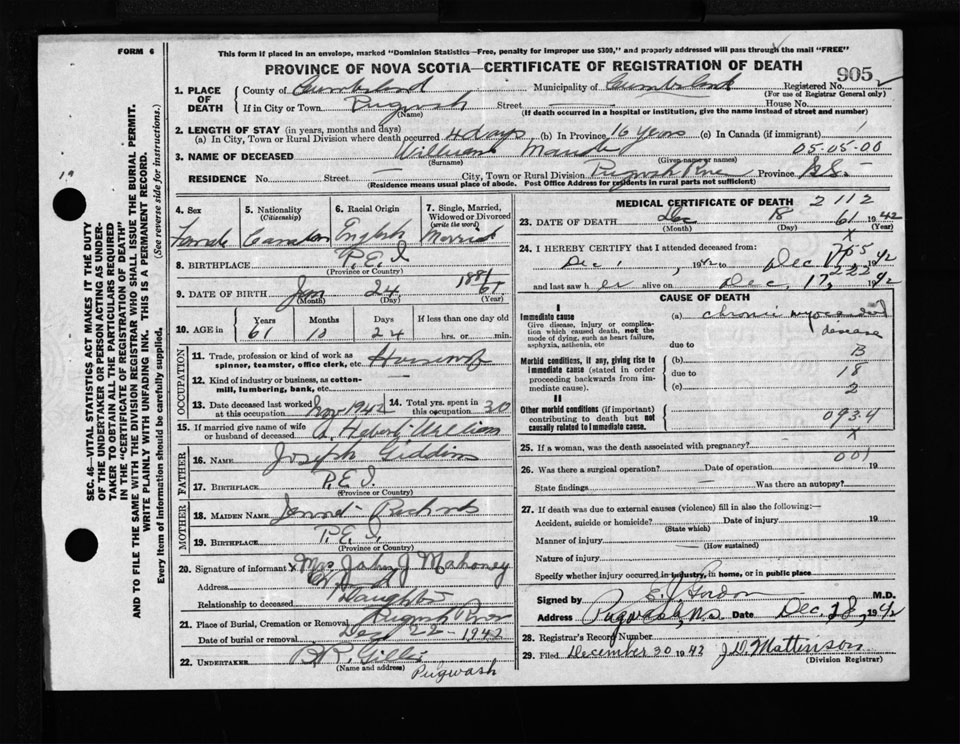 FORM 6
This form if placed in an envelope, marked "Dominion Statistics—Free, penalty for improper use $300," and properly addressed will pass through the mail "FREE"
PROVINCE OF NOVA SCOTIA—CERTIFICATE OF REGISTRATION OF DEATH
905
1. PLACE OF DEATH
County of Cumberland Municipality of Cumberland Registered No.
(For use of Registrar General only)
If in City or Town Pugwash Street — House No.
(Name) (If death occurred in a hospital or institution, give the name instead of street and number)
2. LENGTH OF STAY (in years, months and days)
(a) In City, Town or Rural Division where death occurred 4 days (b) In Province 16 years (c) In Canada (if immigrant)
3. NAME OF DECEASED Williams Maude 05.05-00
(Surname) (Given name or names)
RESIDENCE No. Street — City, Town or Rural Division Pugwash River Province N.S.
(Residence means usual place of abode. Post Office Address for residents in rural parts not sufficient)
4. Sex
Female
5. Nationality (Citizenship)
Canadian
6. Racial Origin
English
7. Single, Married, Widowed or Divorced (write the word)
Married
8. BIRTHPLACE P.E.I
(Province or Country)
9. DATE OF BIRTH Jan 24 1881
61
(Month) (Day) (Year)
10. AGE in Years Months Days If less than one day old
61 24 hrs. or min.
OCCUPATION
11. Trade, profession or kind of work as spinner, teamster, office clerk, etc. Housewife
12. Kind of industry or business, as cotton-mill, lumbering, bank, etc. —
13. Date deceased last worked at this occupation Nov 1942 14. Total yrs. spent in this occupation 30
15. If married give name of wife or husband of deceased Williams
FATHER
16. NAME Joseph Giddins
17. BIRTHPLACE P.E.I.
(Province or Country)
MOTHER
18. MAIDEN NAME
19. BIRTHPLACE P.E.I.
(Province or Country)
20. Signature of informant x Mrs John J Mahoney
Address
Relationship to deceased Daughter
21. Place of Burial, Cremation or Removal Pugwash River
Date of burial or removal Dec 22 - 1942
22. UNDERTAKER B.R. Gillis
(Name and address) Pugwash
MEDICAL CERTIFICATE OF DEATH 2112
23. DATE OF DEATH Dec 18 61 1942
(Month) (Day) (Year)
x
24. I HEREBY CERTIFY that I attended deceased from:
Dec 1, 1942 to Dec 1942
and last saw her alive on Dec. 17, 1942
CAUSE OF DEATH
I
Immediate cause
Give disease, injury or complication which caused death, not the mode of dying, such as heart failure, asphyxia, asthenia, etc
(a) chronic myocardial disease
due to
Morbid conditions, if any, giving rise to immediate cause (stated in order proceeding backwards from immediate cause).
(b) B
due to 18
(c) 2
II
Other morbid conditions (if important) contributing to death but not causally related to immediate cause.
093.4
x
25. If a woman, was the death associated with pregnancy?
001
26. Was there a surgical operation? Date of operation 19
State findings — Was there an autopsy?
27. If death was due to external causes (violence) fill in also the following:—
Accident, suicide or homicide? Date of injury 19
(State which)
Manner of injury —
(How sustained)
Nature of injury
Specify whether injury occurred in industry, in home, or in public place
Signed by Gordon M.D.
Address Pugwash, N.S. Date Dec. 18, 1942
28. Registrar's Record Number
29. Filed December 30 1942 J.D. Mattinson
(Division Registrar)
SEC. 46—VITAL STATISTICS ACT MAKES IT THE DUTY
OF THE UNDERTAKER OR PERSON ACTING AS UNDER-
TAKER TO OBTAIN ALL THE PARTICULARS REQUIRED
IN THE "CERTIFICATE OF REGISTRATION OF DEATH"
AND TO FILE THE SAME WITH THE DIVISION REGISTRAR WHO SHALL ISSUE THE BURIAL PERMIT.
WRITE PLAINLY WITH UNFADING INK. THIS IS A PERMANENT RECORD.
Every item of information should be carefully supplied. (See reverse side for instructions.)